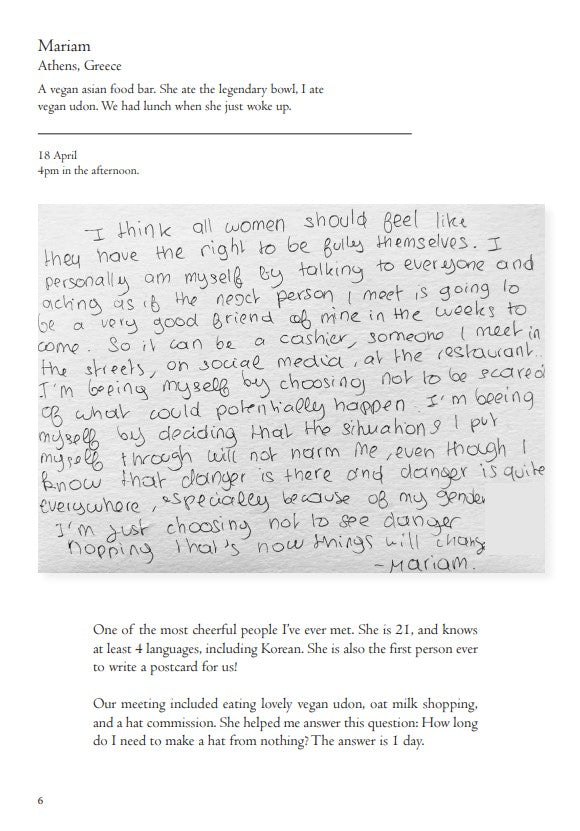 Mariam
Athens, Greece
A vegan asian food bar. She ate the legendary bowl, I ate
vegan udon. We had lunch when she just woke up.
18 April
4pm in the afternoon.
I think all women should feel like
they have the right to be fully themselves. I
personally am myself by talking to everyone and
acting as if the next person I meet is going to
be a very good friend of mine in the weeks to
come. So it can be a cashier, someone I meet in
the streets, on social media, at the restaurant..
I'm beeing myself by choosing not to be scared
of what could potentially happen. I'm beeing
myself by deciding that the situations I put
myself through will not harm me, even though I
know that danger is there and danger is quite
everywhere, especially because of my gender
I'm just choosing not to see danger
hopping that's how things will chang
- Mariam.
One of the most cheerful people I've ever met. She is 21, and knows
at least 4 languages, including Korean. She is also the first person ever
to write a postcard for us!
Our meeting included eating lovely vegan udon, oat milk shopping,
and a hat commission. She helped me answer this question: How long
do I need to make a hat from nothing? The answer is 1 day.
6